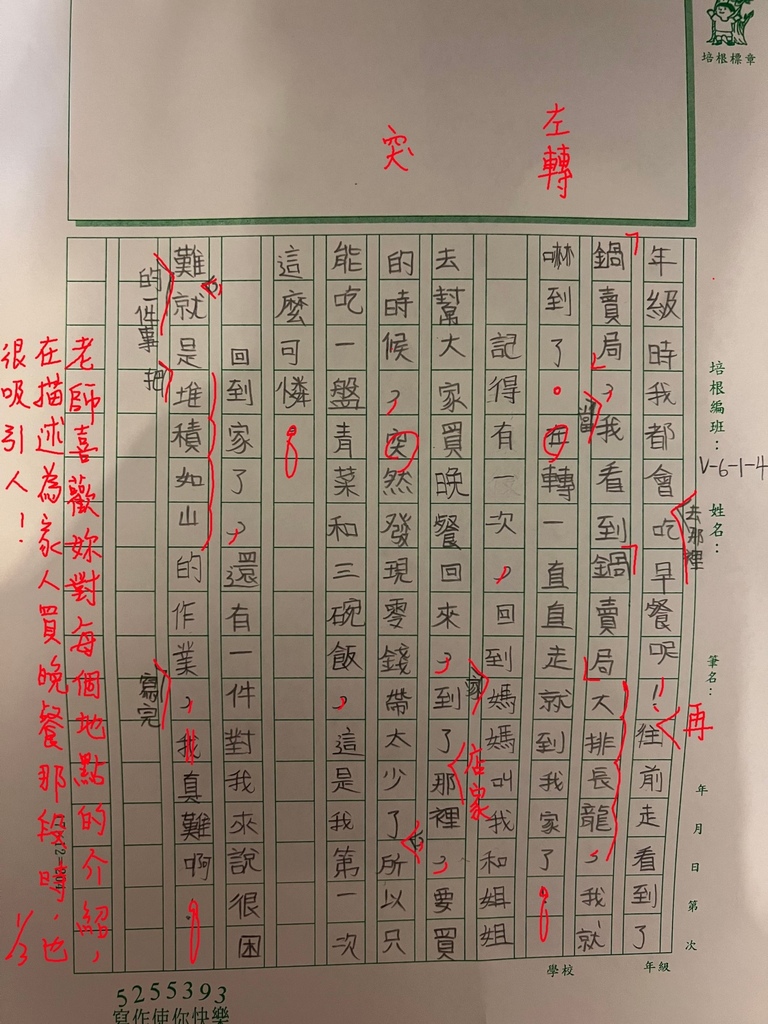 培根標章
左轉
突
年級時我都會吃早餐呢!!往前走看到了
去那裡
再
「鍋賣局」,我看到「鍋賣局」大排長龍,我就
當
嚇到了。在轉一直直走就到我家了。
記得有一次,回到媽媽叫我和姐姐
家
去幫大家買晚餐回來,到了那裡,要買
店家
的時候,突然發現零錢帶太少了所以只
能吃一盤青菜和三碗飯,這是我第一次
這麼可憐。
回到家了,還有一件對我來說很困
難就是堆積如山的作業,我真難啊。
的一件事
把
寫完
老師喜歡妳對每個地點的介紹,
在描述為家人買晚餐那段時,也
很吸引人!
1/3
培根編班:
V-6-1-4
姓名:
筆名:
年 月 日 第 次
學校 年級
5255393
寫作使你快樂